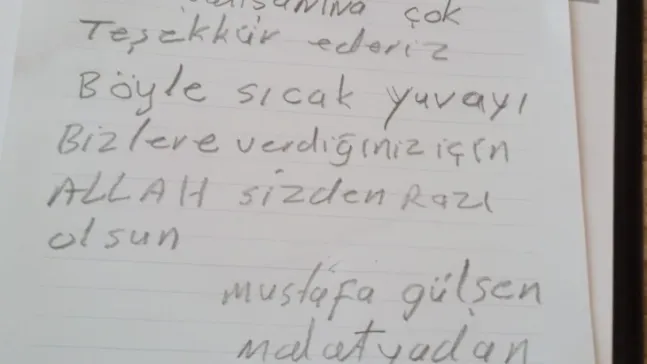 çok
Teşekkür ederiz
Böyle sıcak yuvayı
Bizlere verdiğiniz için
ALLAH sizden Razı
olsun
mustafa gülşen
malatyadan